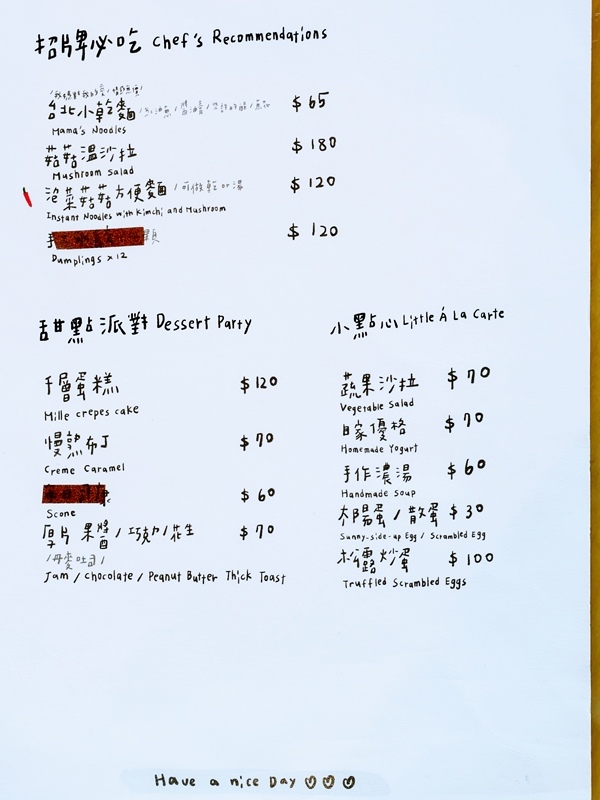 招牌必吃 Chef's Recommendations
台北小乾麵 $65
Mama's Noodles
菇菇溫沙拉 $180
Mushroom Salad
泡菜菇菇方便麵 /可做乾 or 湯 $120
Instant Noodles with Kimchi and Mushroom
手 顆 $120
Dumplings x12
甜點派對 Dessert Party
千層蛋糕 $120
Mille crepes cake
慢熟布丁 $70
Creme Caramel
$60
Scone
厚片 果醬/巧克力/花生 $70
/丹麥吐司/
Jam / Chocolate / Peanut Butter Thick Toast
小點心 Little Á La Carte
蔬果沙拉 $70
Vegetable Salad
自家優格 $70
Homemade Yogurt
手作濃湯 $60
Handmade Soup
太陽蛋/散蛋 $30
Sunny-side-up Egg / Scrambled Egg
松露炒蛋 $100
Truffled Scrambled Eggs
Have a nice Day